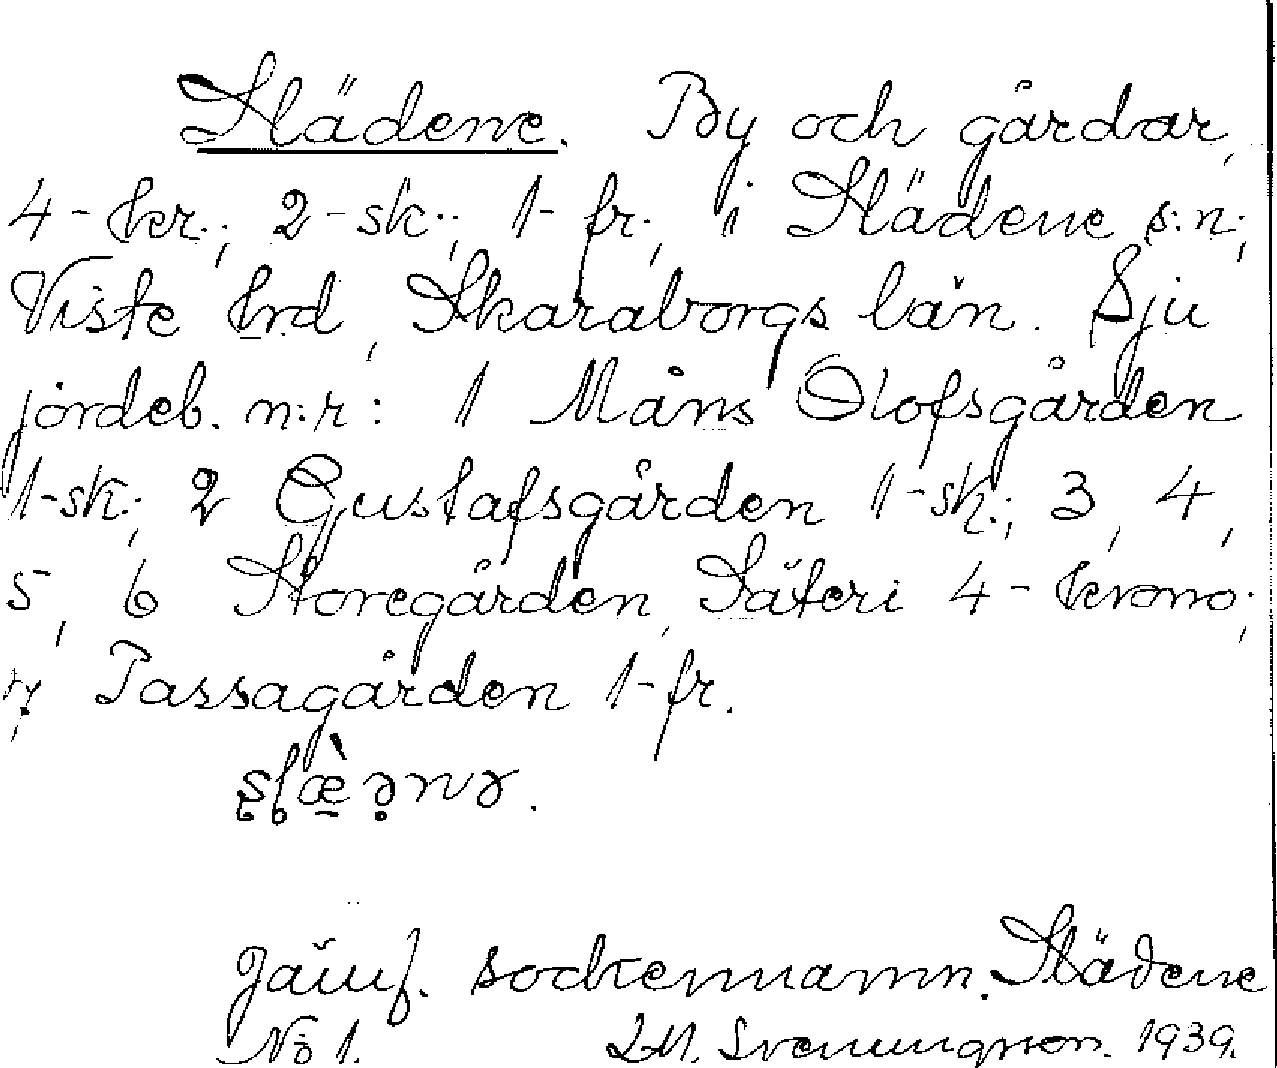 Slädene. By och gårdar,
4-kr.; 2-sk.; 1-fr.; i Slädene s:n;
Viste hrd, Skaraborgs län. Sju
jordeb. n:r: 1 Måns Olofsgården
1-sk.; 2 Gustafsgården 1-sk.; 3, 4,
5, 6 Storegården, Säteri 4-krono;
7, Tassagården 1-fr.
Jämf. sockennamn. Slädene
No 1. Svenungsson. 1939.